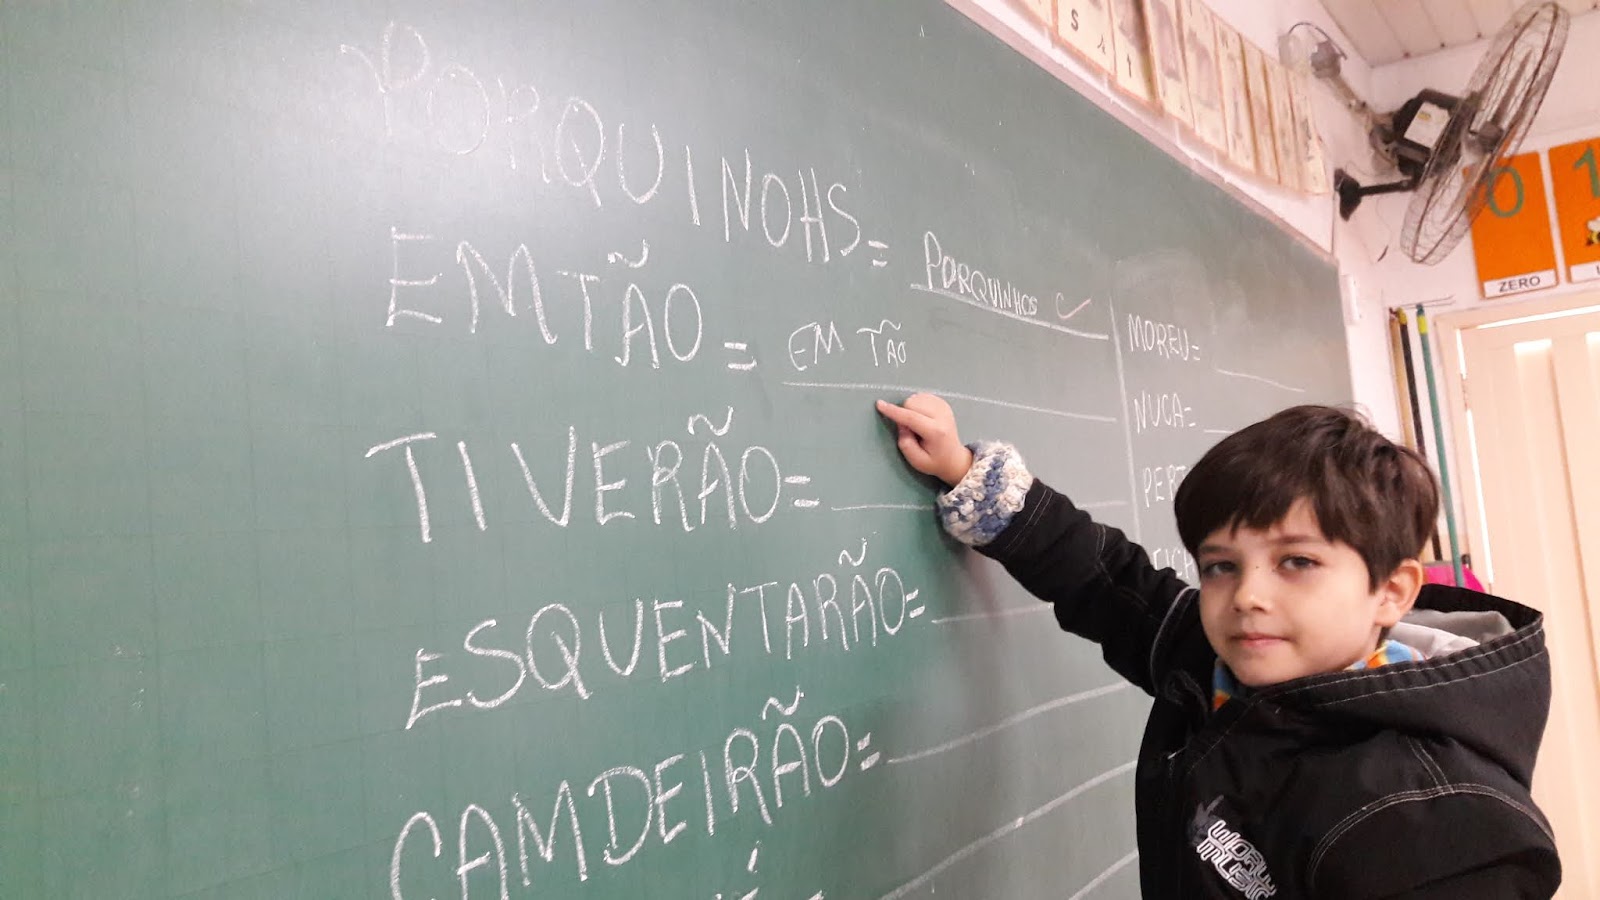 PORQUINOHS = PORQUINHOS
EMTÃO = EM TÃO
TIVERÃO =
ESQUENTARÃO =
CAMDEIRÃO =
MOREU =
NUCA =
ZERO
WORLD MUSIC
0
1
S